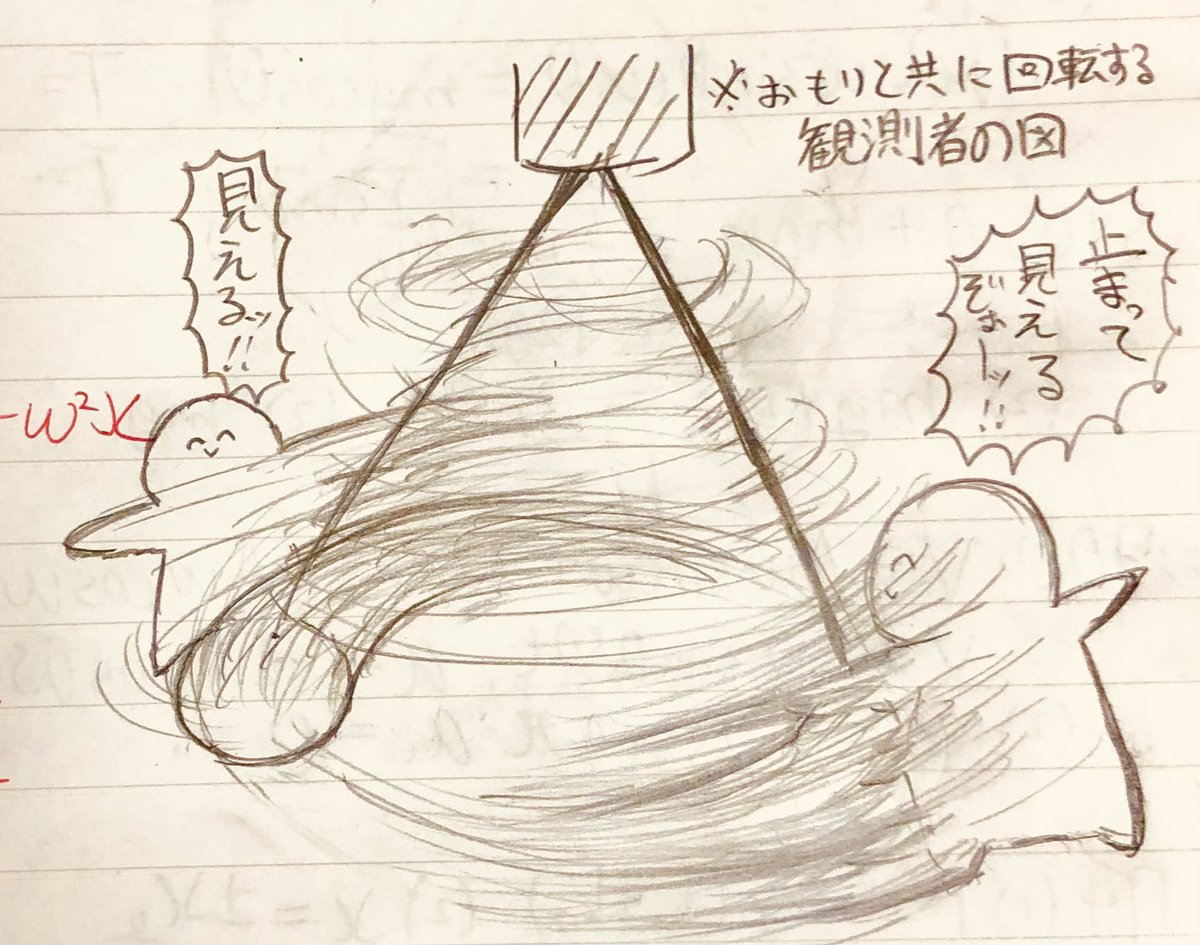 ※おもりと共に回転する
観測者の図
見えるッ!!
止まって
見える
ぞぉーッ!!
-ω²x